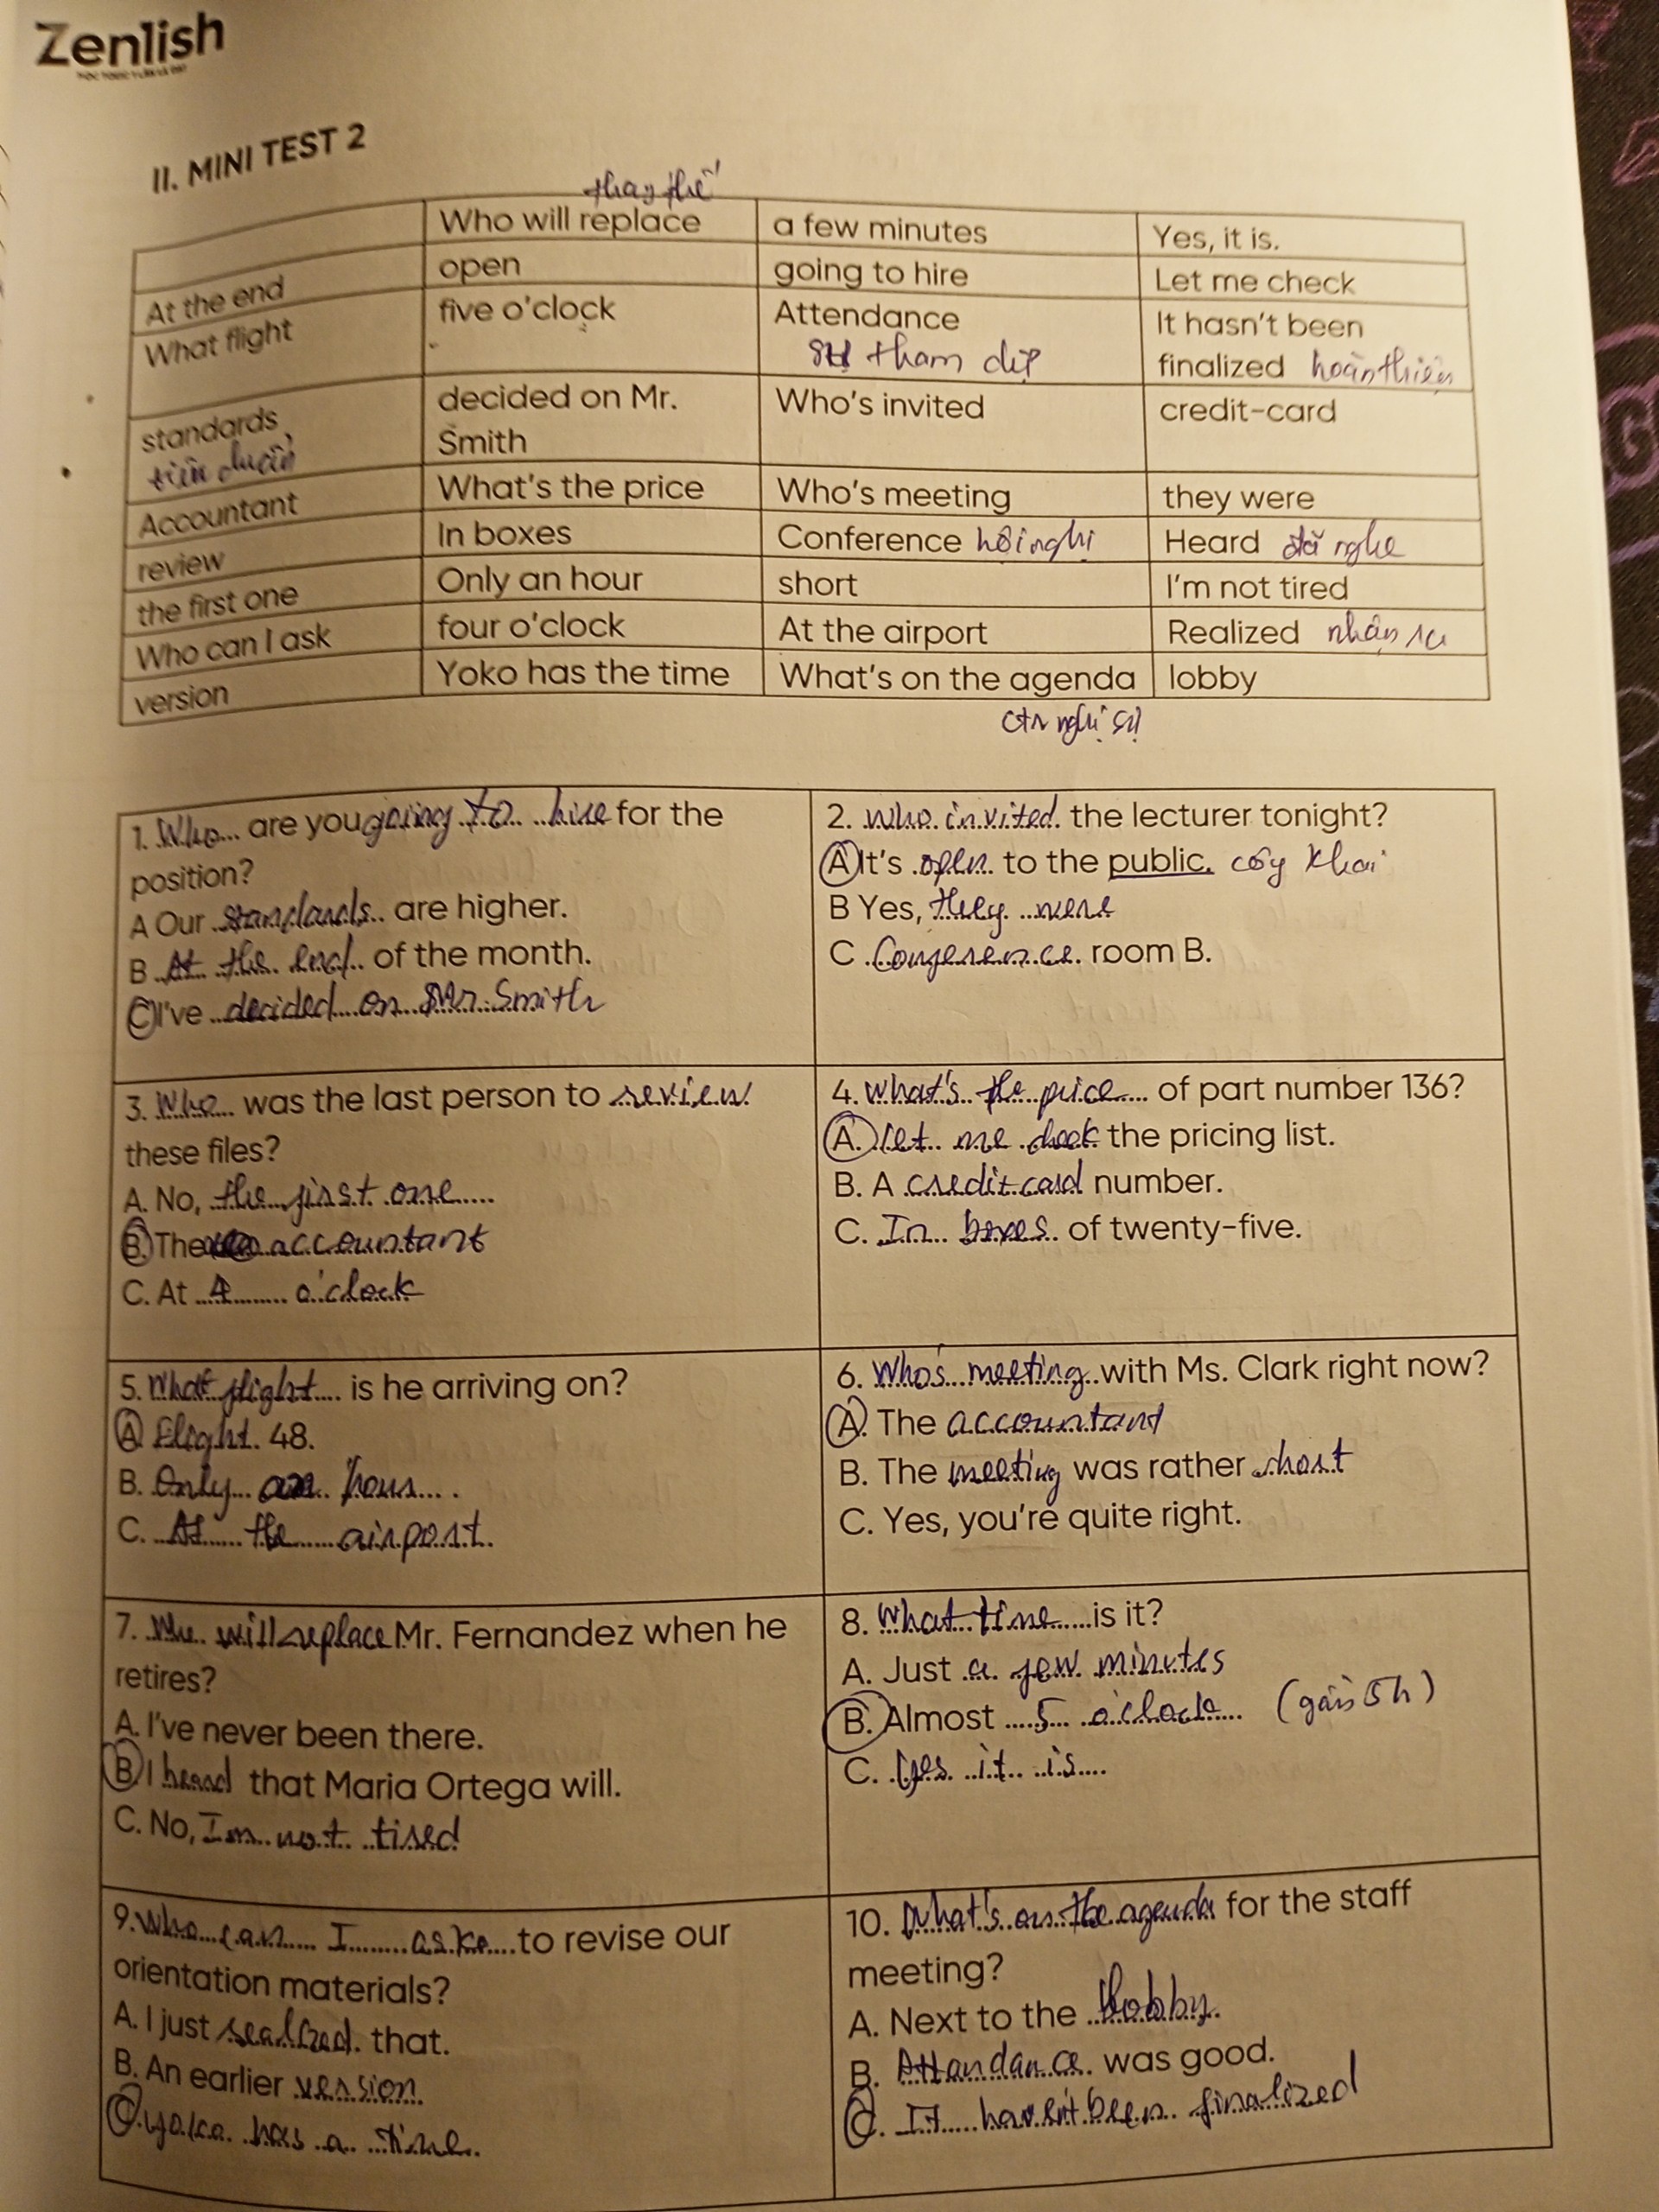 Zenlish
II. MINI TEST 2
thay thế
Who will replace a few minutes Yes, it is.
At the end open going to hire Let me check
What flight five o'clock Attendance It hasn't been
sự tham dự finalized hoàn thiện
standards decided on Mr. Who's invited credit-card
tiêu chuẩn Smith
Accountant What's the price Who's meeting they were
review In boxes Conference hội nghị Heard đã nghe
the first one Only an hour short I'm not tired
Who can I ask four o'clock At the airport Realized nhận ra
version Yoko has the time What's on the agenda lobby
ctr nghị sự
1. Who are you going to hire for the
position?
A Our standards are higher.
B At the end of the month.
C I've decided on Mr. Smith
2. Who invited the lecturer tonight?
A It's open to the public.
B Yes, they were
C Conference room B.
3. Who was the last person to review
these files?
A. No, the first one
B. The accountant
C. At 4 o'clock
4. What's the price of part number 136?
A. Let me check the pricing list.
B. A credit card number.
C. In boxes of twenty-five.
5. What flight is he arriving on?
A Flight 48.
B. Only an hour.
C. At the airport.
6. Who's meeting with Ms. Clark right now?
A. The accountant
B. The meeting was rather short
C. Yes, you're quite right.
7. Who will replace Mr. Fernandez when he
retires?
A. I've never been there.
B I heard that Maria Ortega will.
C. No, I'm not tired
8. What time is it?
A. Just a few minutes
B. Almost 5 o'clock (gần 5h)
C. Yes it is
9. Who can I ask to revise our
orientation materials?
A. I just realized that.
B. An earlier version
C. Yoko has a time.
10. What's on the agenda for the staff
meeting?
A. Next to the lobby.
B. Attandance was good.
C. It haven't been finalized